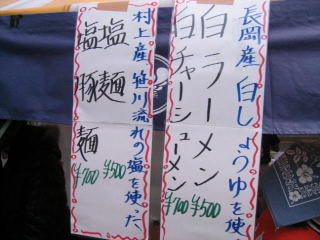 長岡産 白しょうゆを使
白ラーメン ¥500
白チャーシューメン ¥700
村上産 笹川流れの塩を使った
塩麺 ¥500
塩豚麺 ¥700